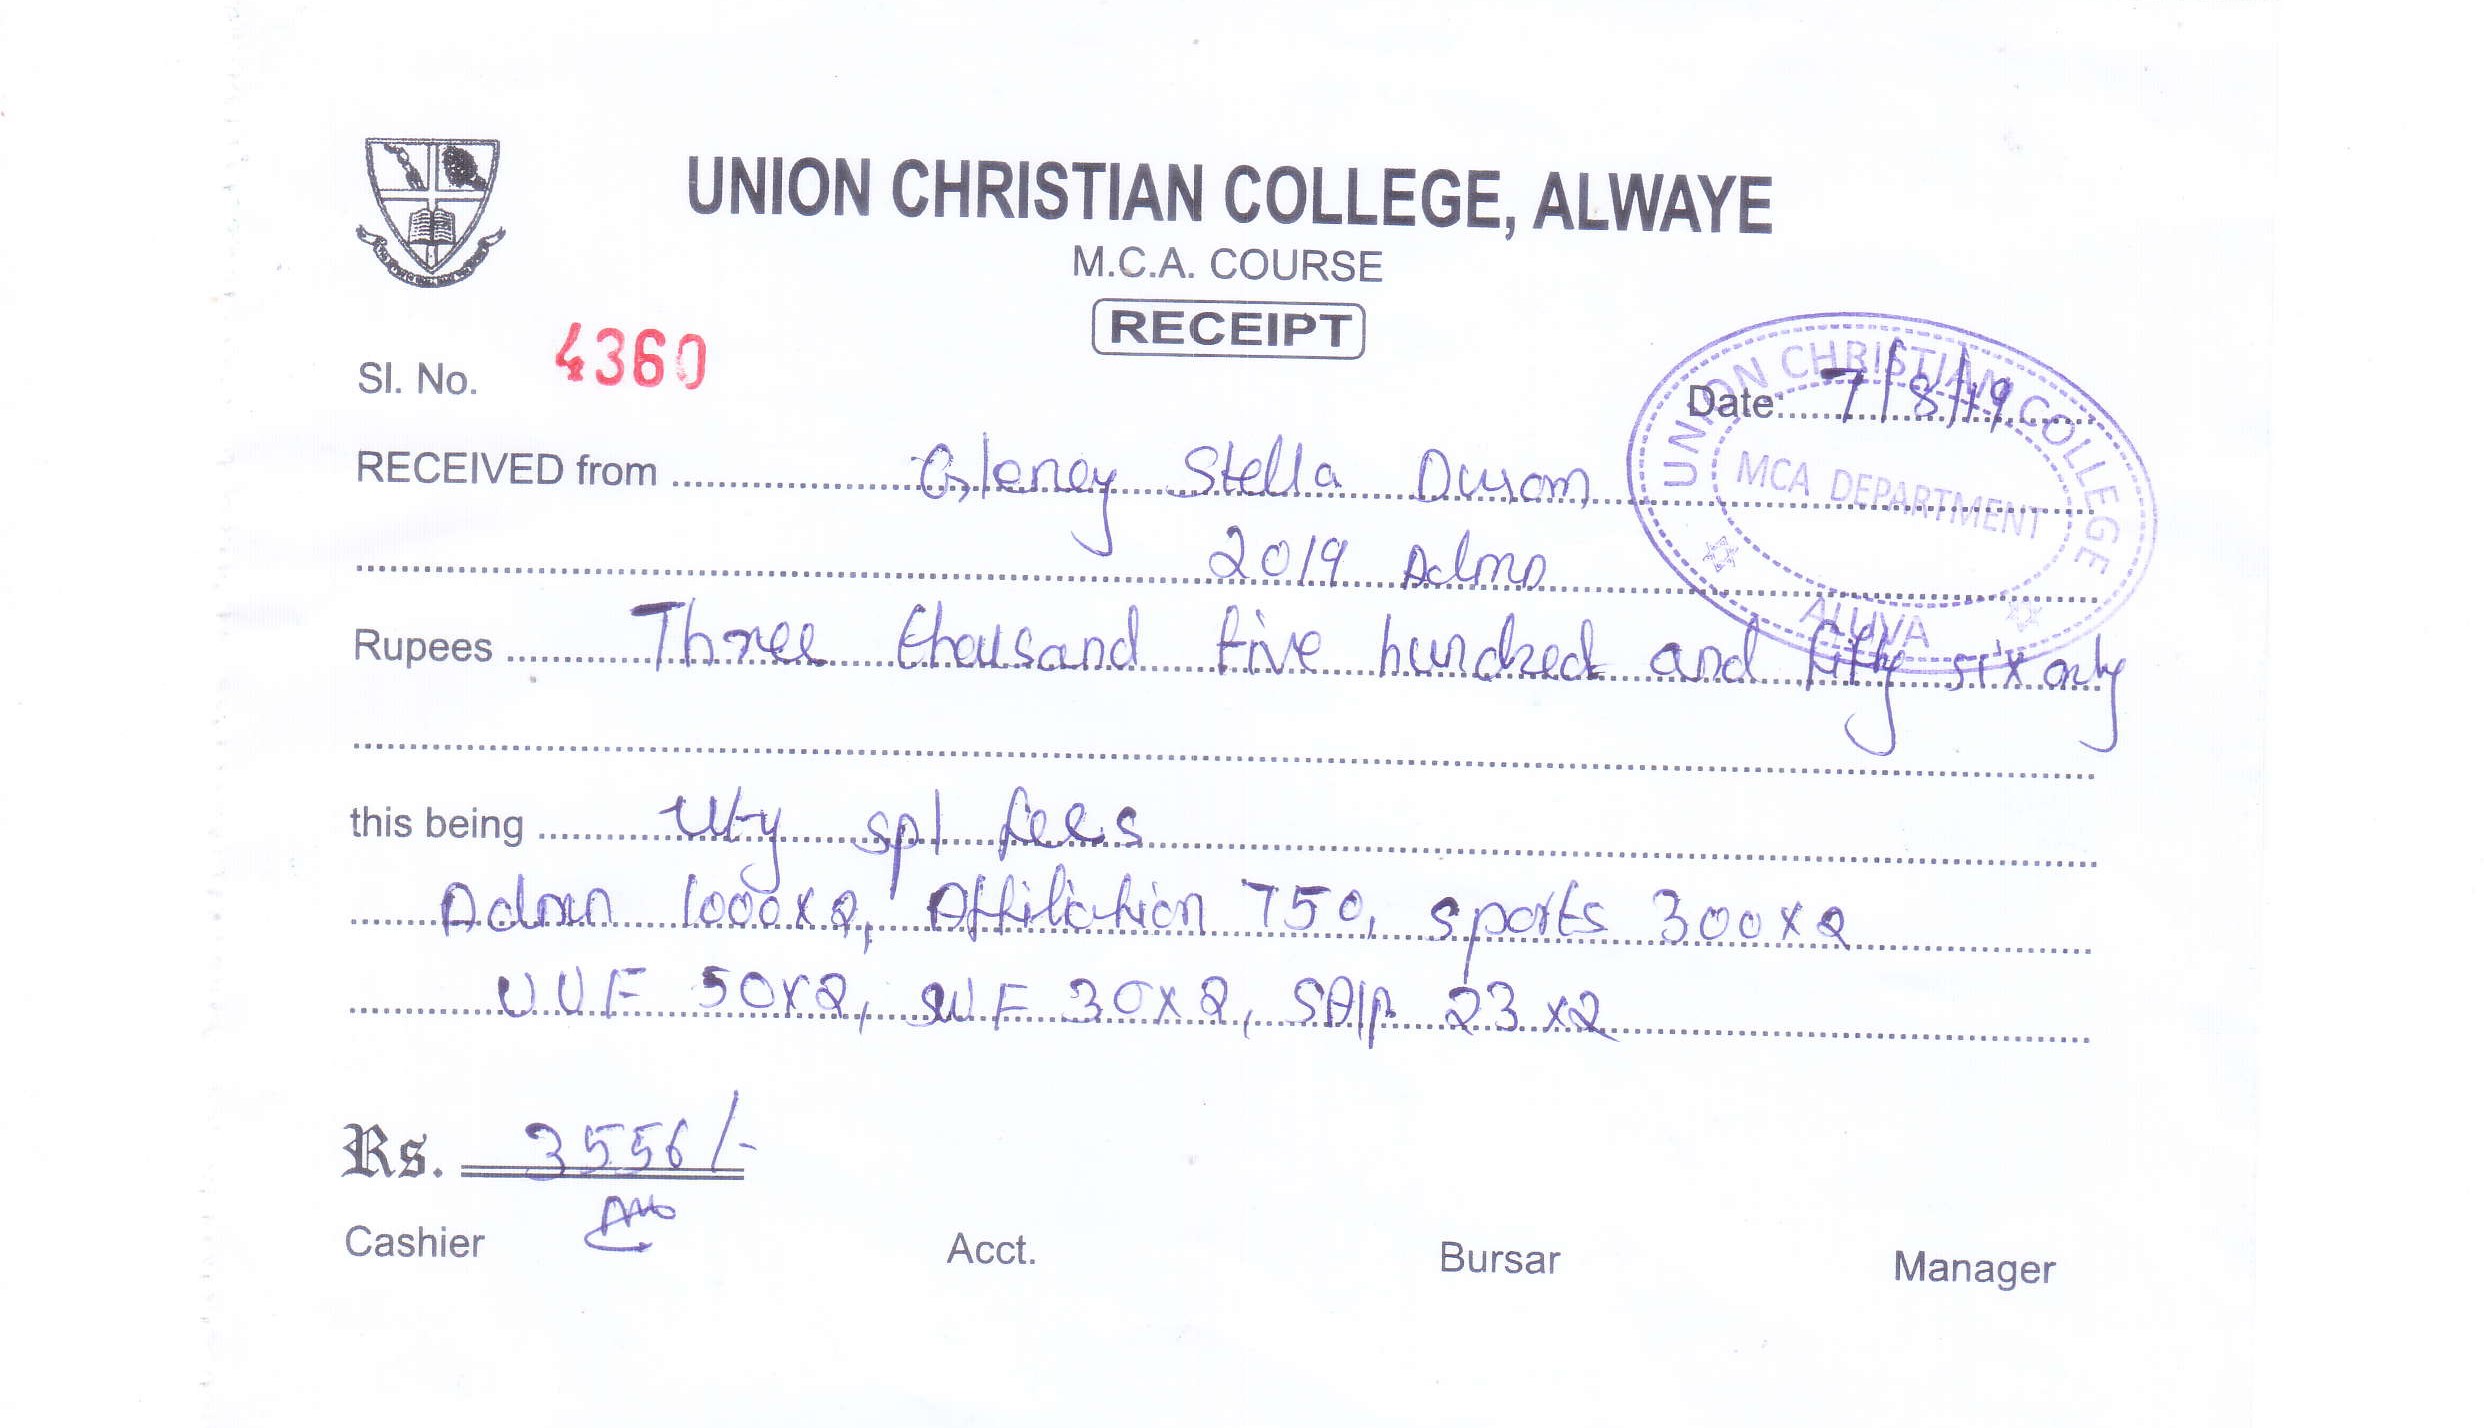 UNION CHRISTIAN COLLEGE, ALWAYE
M.C.A. COURSE
RECEIPT
Sl. No. 4360
Date: 7/8/19
UNION CHRISTIAN COLLEGE
MCA DEPARTMENT
ALUVA
RECEIVED from Gleney Stella
2019 Admn
Rupees Three thousand five hundred and fifty six only
this being Uty spl fees
Admn 1000x2, Affiliation 750, sports 300x2
UUF 50x2, SWF 30x2, 23x2
Rs. 3556/-
Cashier Acct. Bursar Manager